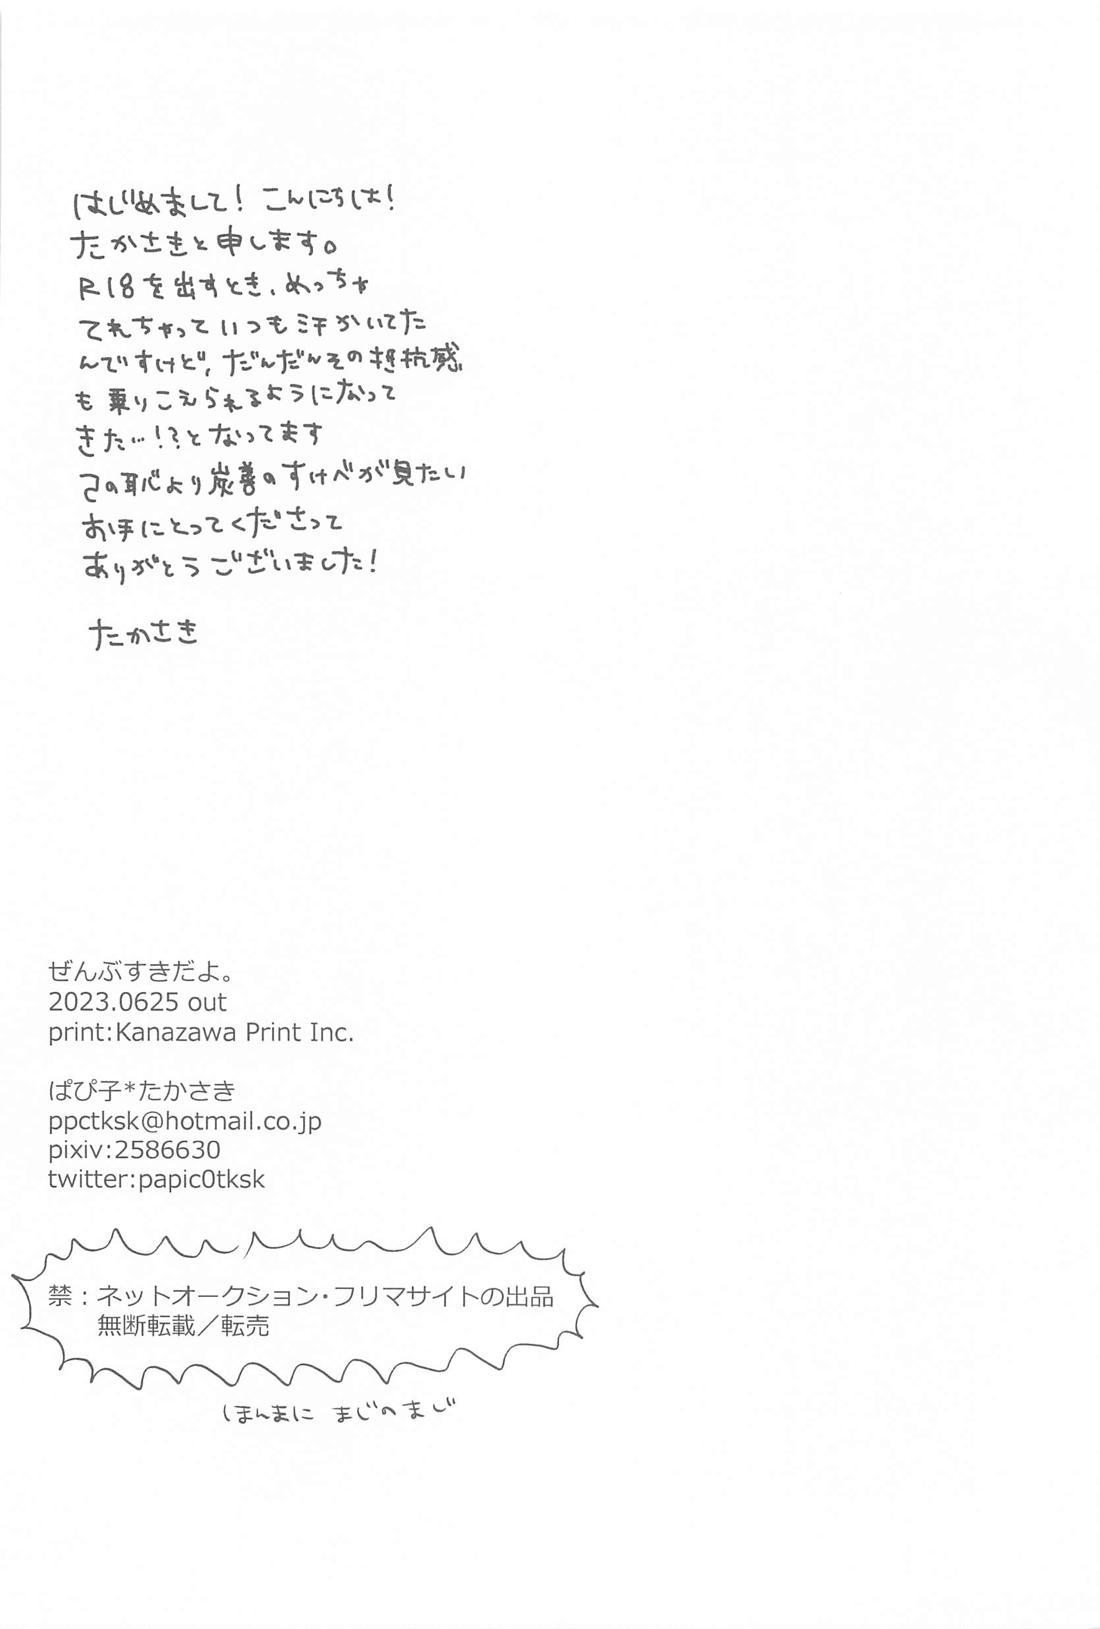 はじめまして！ こんにちは！
たかさきと申します。
R18を出すとき、めっちゃ
てれちゃっていつも汗かいてた
んですけど、だんだんその抵抗感
も乗りこえられるようになって
きた…！？となってます
己の恥より炭善のすけべが見たい
お手にとってくださって
ありがとうございました！
たかさき
ぜんぶすきだよ。
2023.0625 out
print:Kanazawa Print Inc.
ぱぴ子*たかさき
ppctksk@hotmail.co.jp
pixiv:2586630
twitter:papic0tksk
禁：ネットオークション・フリマサイトの出品
無断転載／転売
ほんまに まじのまじ